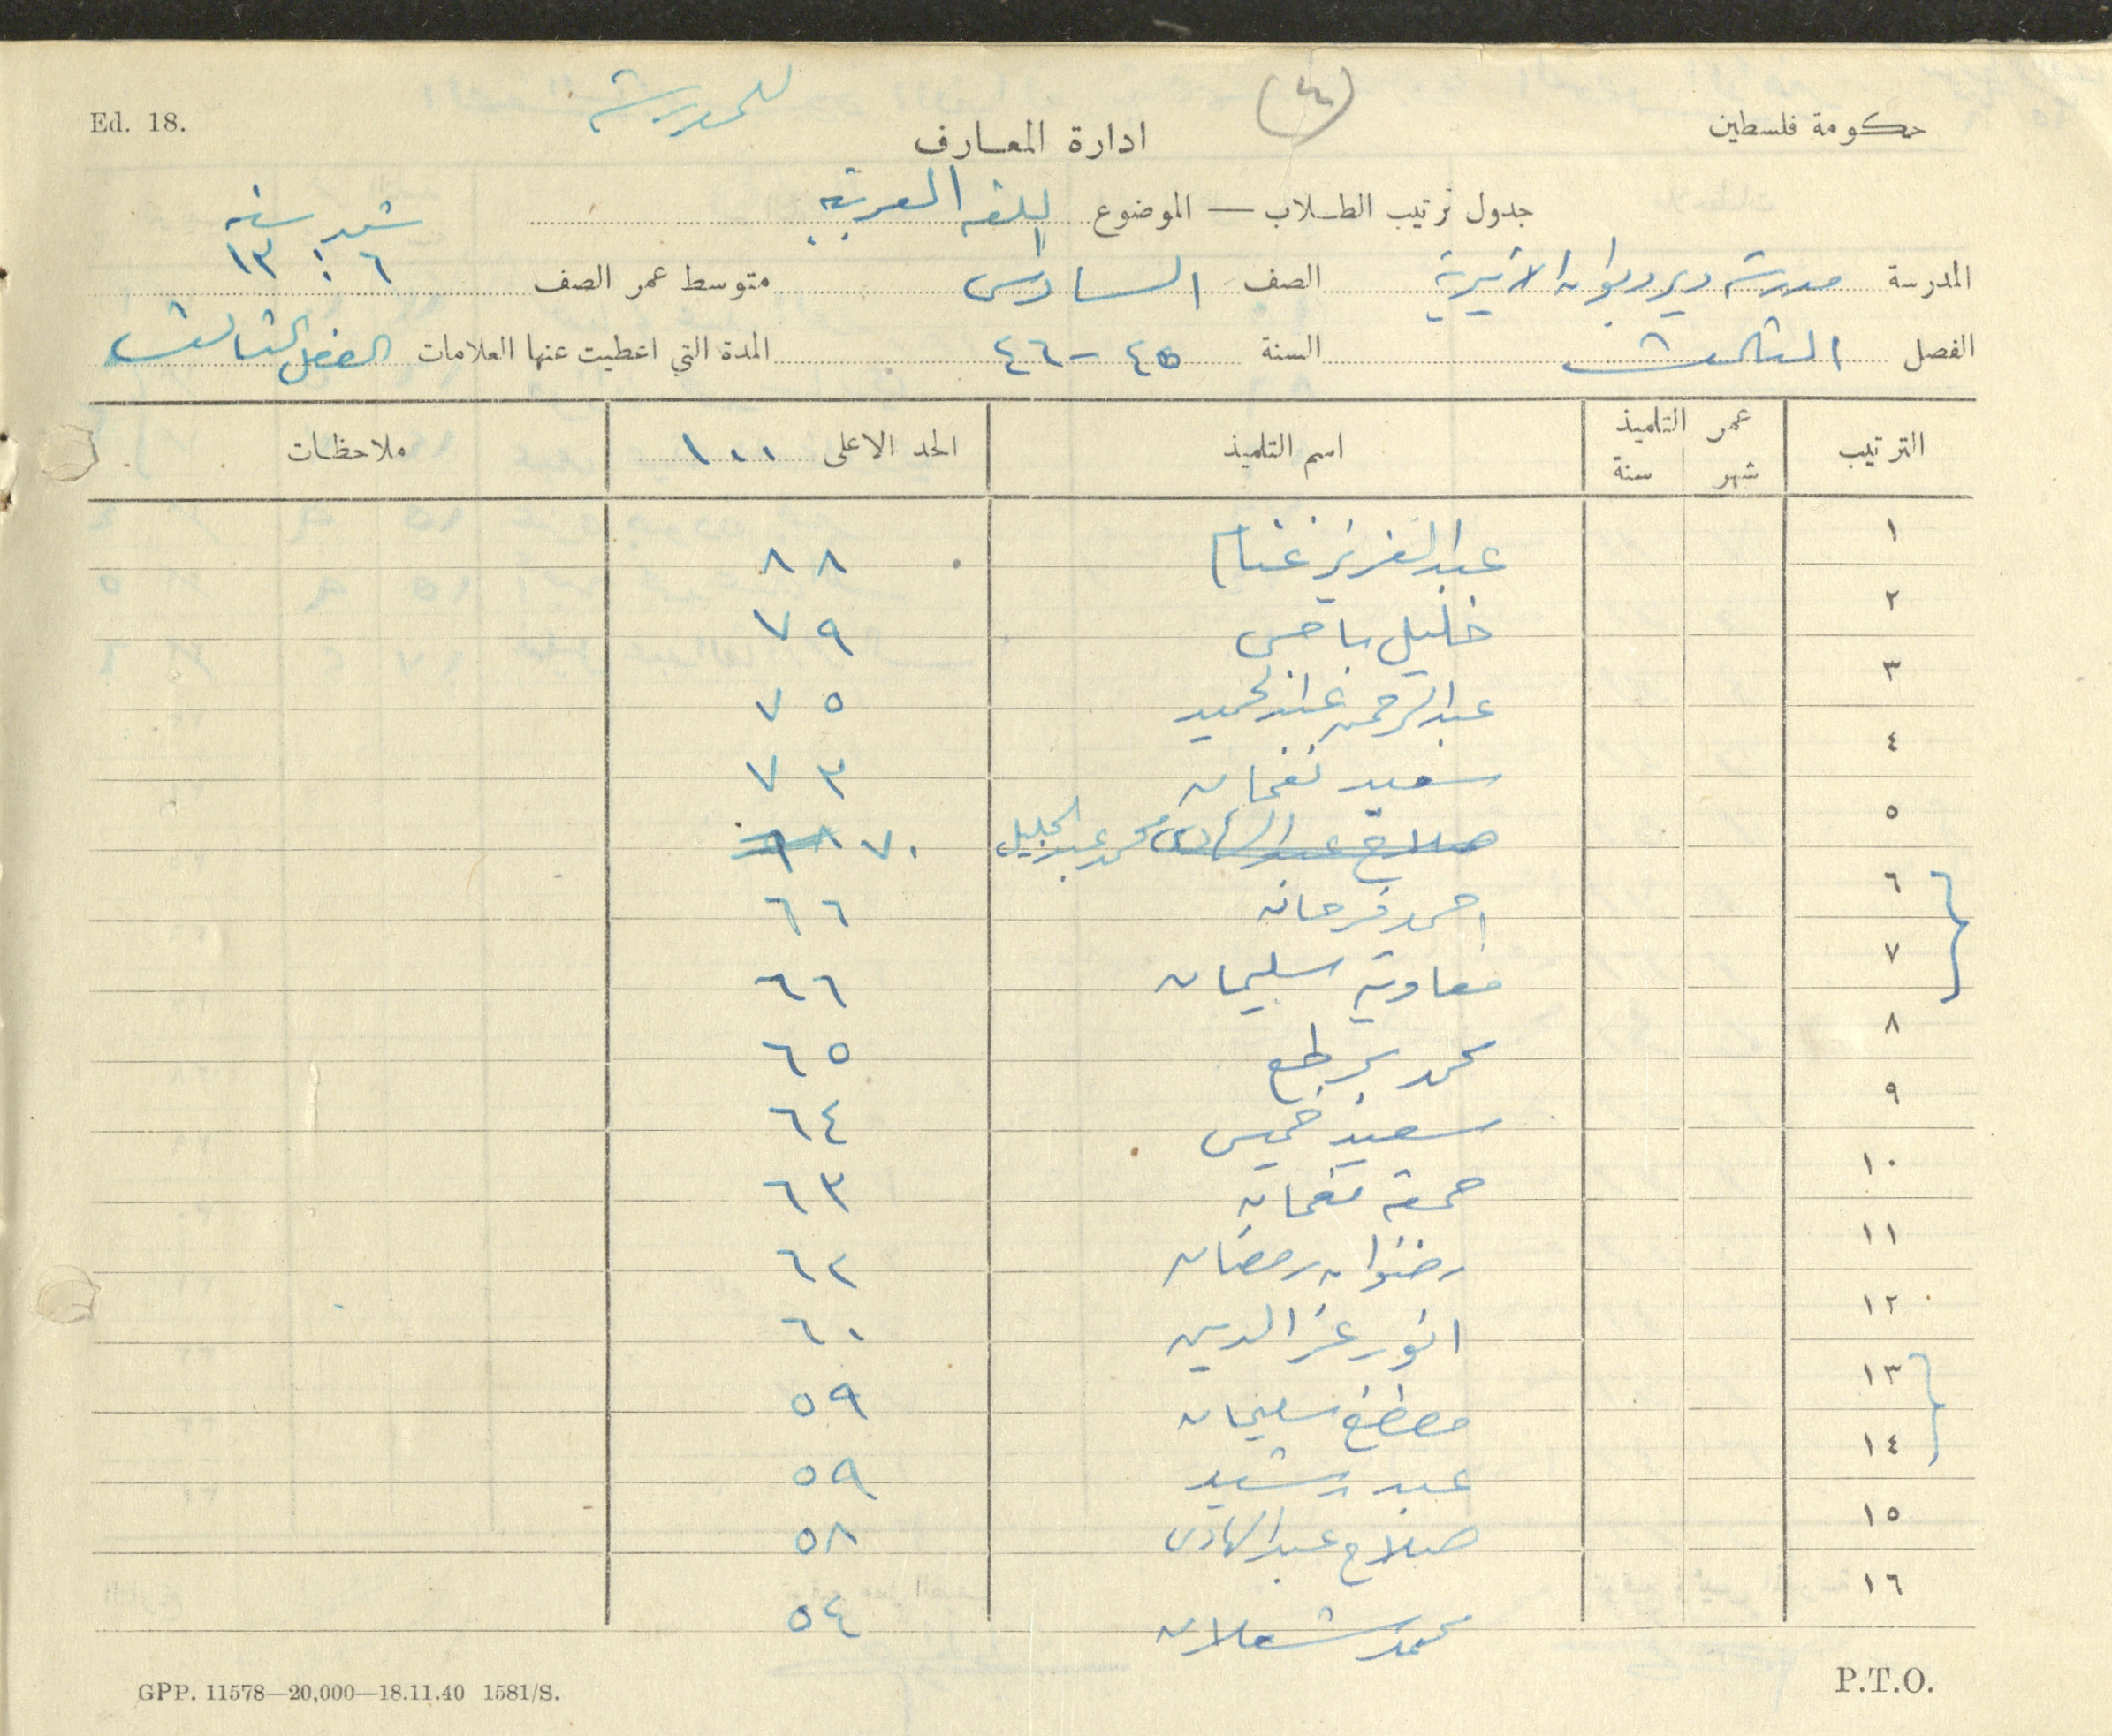 Ed. 18.
للمدرسة
حكومة فلسطين
ادارة المعارف
جدول ترتيب الطلاب — الموضوع اللغة العربية
المدرسة مدرسة دير دبوان الاميرية الصف السادس متوسط عمر الصف شهر سنة ٦ : ١٣
الفصل الثالث السنة ٤٥ - ٤٦ المدة التي اعطيت عنها العلامات الفصل الثالث
الترتيب عمر التلميذ شهر سنة اسم التلميذ الحد الاعلى ١٠٠ ملاحظات
١ عبد العزيز غنام ٨٨
٢ خليل باجس ٧٩
٣ عبد الرحمن عبد الحميد ٧٥
٤ سعيد نعمان ٧٣
٥ صلاح عبد الهادي محمد عبد الجليل ٧٠
٦ احمد فرحان ٦٦
٧ معاوية سليمان ٦٦
٨ محمد ٦٥
٩ سعيد خميس ٦٤
١٠ جمعة نعمان ٦٣
١١ رضوان رمضان ٦٢
١٢ انور عز الدين ٦٠
١٣ مصطفى سليمان ٥٩
١٤ عبد رشيد ٥٩
١٥ صلاح عبد الهادي ٥٨
١٦ محمد شعلان ٥٤
GPP. 11578—20,000—18.11.40 1581/S.
P.T.O.